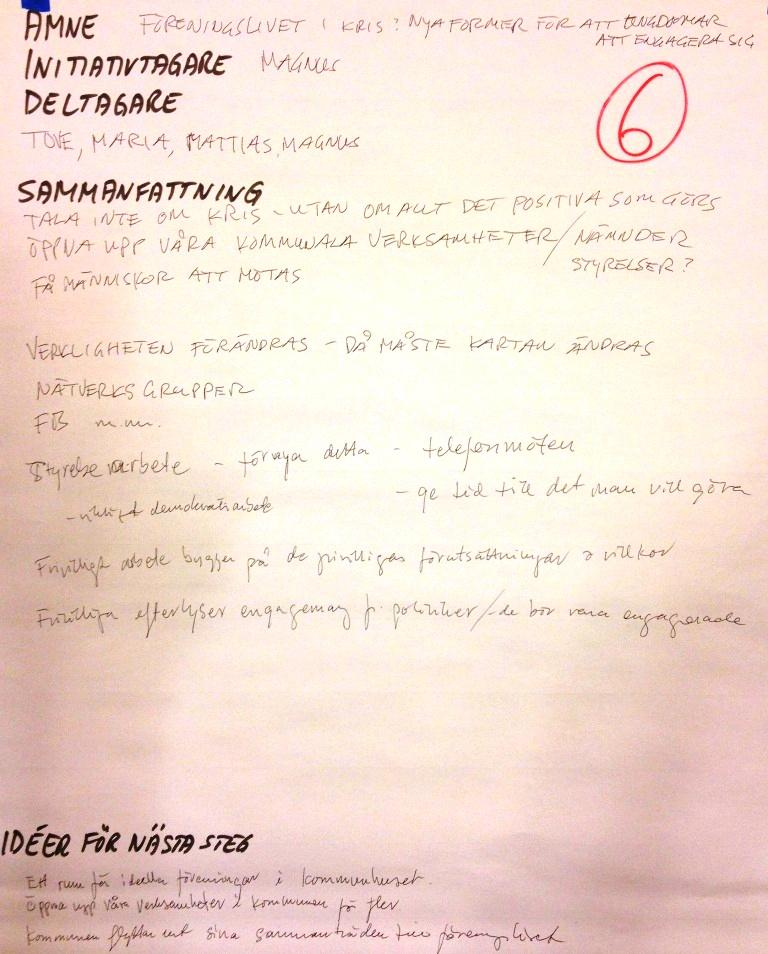 ÄMNE FÖRENINGSLIVET I KRIS? NYA FORMER FÖR ATT UNGDOMAR
ATT ENGAGERA SIG
INITIATIVTAGARE MAGNUS
6
DELTAGARE
TOVE, MARIA, MATTIAS, MAGNUS
SAMMANFATTNING
TALA INTE OM KRIS - UTAN OM ALLT DET POSITIVA SOM GÖRS
ÖPPNA UPP VÅRA KOMMUNALA VERKSAMHETER / NÄMNDER
STYRELSER?
FÅ MÄNNISKOR ATT MÖTAS
VERKLIGHETEN FÖRÄNDRAS - DÅ MÅSTE KARTAN ÄNDRAS
NÄTVERKSGRUPPER
FB m.m.
Styrelsearbete - förnya detta - telefonmöten
- ge tid till det man vill göra
- viktigt demokratiarbete
Frivilligt arbete bygger på de frivilligas förutsättningar o villkor
Frivilliga efterlyser engagemang fr. politiker / de bör vara engagerade
IDÉER FÖR NÄSTA STEG
Ett rum för ideella föreningar i kommunhuset.
Öppna upp våra verksamheter i kommunen för fler
Kommunen flyttar ut sina sammanträden till föreningslivet